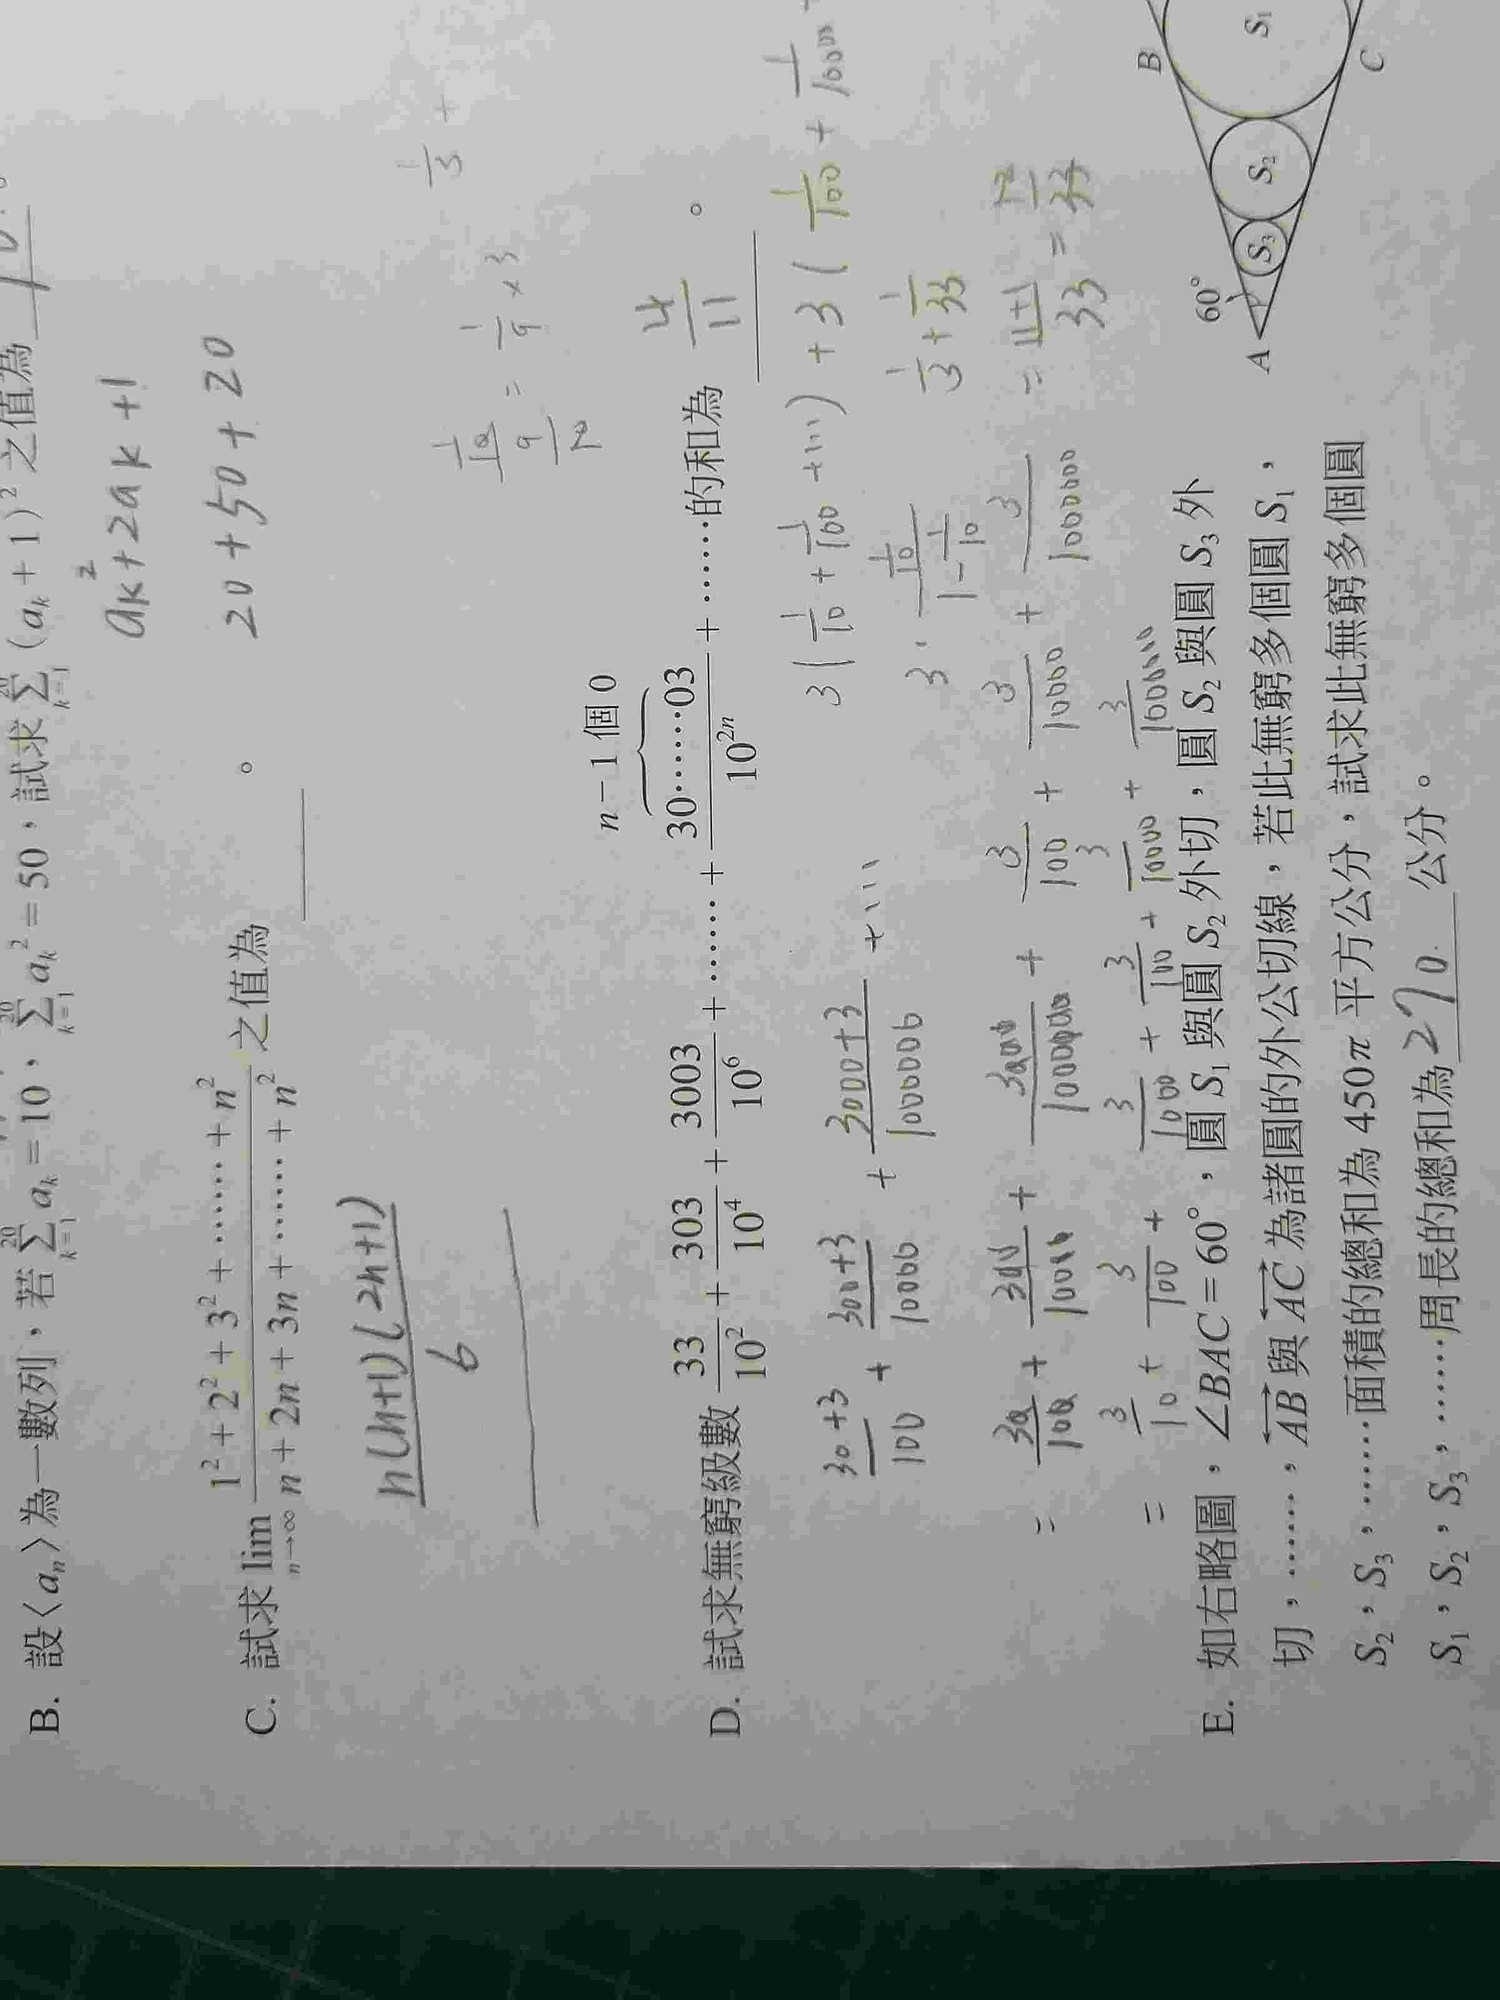 B. 設〈aₙ〉為一數列，若 $\sum_{k=1}^{20} a_k = 10$、$\sum_{k=1}^{20} a_k^2 = 50$，試求 $\sum_{k=1}^{20} (a_k + 1)^2$ 之值為
ak²+2ak+1
20+50+20
C. 試求 $\lim_{n \to \infty} \frac{1^2 + 2^2 + 3^2 + \cdots\cdots + n^2}{n + 2n + 3n + \cdots\cdots + n^2}$ 之值為 ______ 。
$\frac{n(n+1)(2n+1)}{6}$
$\frac{1}{3}$ +
$\frac{\frac{1}{10}}{\frac{9}{10}} = \frac{1}{9} \times 3$
n－1個0
D. 試求無窮級數 $\frac{33}{10^2} + \frac{303}{10^4} + \frac{3003}{10^6} + \cdots\cdots + \frac{30\cdots\cdots03}{10^{2n}} + \cdots\cdots$ 的和為 $\frac{4}{11}$ 。
$\frac{30+3}{100} + \frac{300+3}{10000} + \frac{3000+3}{1000000} + \cdots$
$3(\frac{1}{10} + \frac{1}{100} + \cdots) + 3(\frac{1}{100} + \frac{1}{10000} +$
$3 \cdot \frac{\frac{1}{10}}{1 - \frac{1}{10}}$ $\frac{1}{3} + \frac{1}{33}$
$= \frac{30}{100} + \frac{300}{10000} + \frac{3000}{1000000} + \frac{3}{100} + \frac{3}{10000} + \frac{3}{1000000}$ $= \frac{11+1}{33} = \frac{12}{33}$
$= \frac{3}{10} + \frac{3}{100} + \frac{3}{1000} + \frac{3}{100} + \frac{3}{10000} + \frac{3}{1000000}$
E. 如右略圖，∠BAC＝60°，圓 S₁ 與圓 S₂ 外切，圓 S₂ 與圓 S₃ 外
切，……，$\overleftrightarrow{AB}$ 與 $\overleftrightarrow{AC}$ 為諸圓的外公切線，若此無窮多個圓 S₁，
S₂，S₃，……面積的總和為 450π 平方公分，試求此無窮多個圓
S₁，S₂，S₃，……周長的總和為 270 公分。
60°
A
B
C
S₁
S₂
S₃